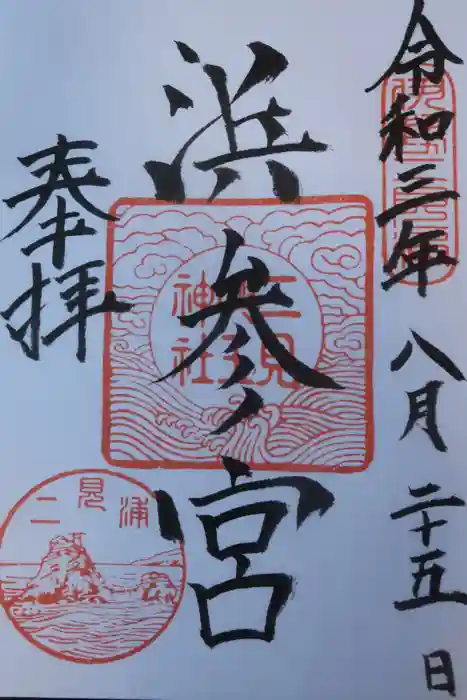 令和三年八月二十五日
浜参宮
奉拝
二見
玉
神社
二見浦